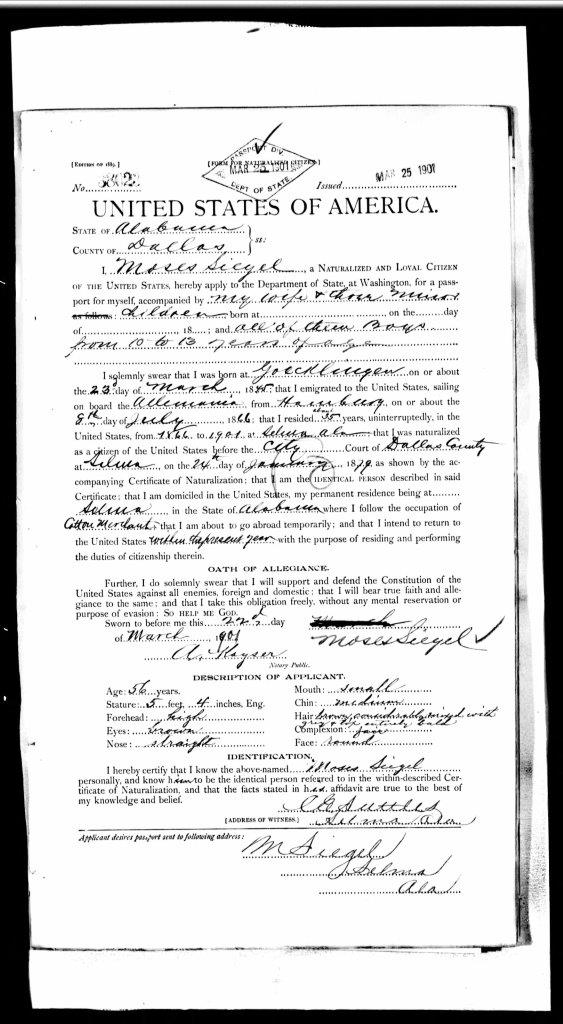 [EDITION OF 1889.]
[FORM FOR NATURALIZED CITIZEN.]
PASSPORT DIV.
MAR 25 1901
DEPT OF STATE.
No.
Issued MAR 25 1901
UNITED STATES OF AMERICA.
STATE OF Alabama
COUNTY OF Dallas } ss:
I, Moses Siegel, a NATURALIZED AND LOYAL CITIZEN
OF THE UNITED STATES, hereby apply to the Department of State, at Washington, for a pass-
port for myself, accompanied by my wife & Minor
as follows: Children born at on the day
of , 18 ; and all of them Boys
from 10 to 13 years of age
I solemnly swear that I was born at Goecklingen on or about
the 23d day of March, 1845; that I emigrated to the United States, sailing
on board the Allemania from Hamburg, on or about the
8th day of July, 1866; that I resided about 35 years, uninterruptedly, in the
United States, from 1866 to 1901 at Selma Ala that I was naturalized
as a citizen of the United States before the City Court of Dallas County
at Selma, on the 24th day of January, 1879, as shown by the ac-
companying Certificate of Naturalization; that I am the IDENTICAL PERSON described in said
Certificate; that I am domiciled in the United States, my permanent residence being at
Selma in the State of Alabama where I follow the occupation of
Cotton Merchant; that I am about to go abroad temporarily; and that I intend to return to
the United States within the present year with the purpose of residing and performing
the duties of citizenship therein.
OATH OF ALLEGIANCE.
Further, I do solemnly swear that I will support and defend the Constitution of the
United States against all enemies, foreign and domestic; that I will bear true faith and alle-
giance to the same; and that I take this obligation freely, without any mental reservation or
purpose of evasion: SO HELP ME GOD.
Sworn to before me this 22d day
of March, 1901 Moses Siegel
A. Kayser
Notary Public.
DESCRIPTION OF APPLICANT.
Age: 56 years. Mouth: small
Stature: 5 feet, 4 inches, Eng. Chin: medium
Forehead: high Hair: brown, considerably mixed with
grey & top entirely bald
Eyes: brown Complexion: fair
Nose: straight Face: round
IDENTIFICATION.
I hereby certify that I know the above-named Moses Siegel
personally, and know him to be the identical person referred to in the within-described Cer-
tificate of Naturalization, and that the facts stated in his affidavit are true to the best of
my knowledge and belief.
Suttles
[ADDRESS OF WITNESS.] Selma Ala
Applicant desires passport sent to following address:
M Siegel
Selma
Ala